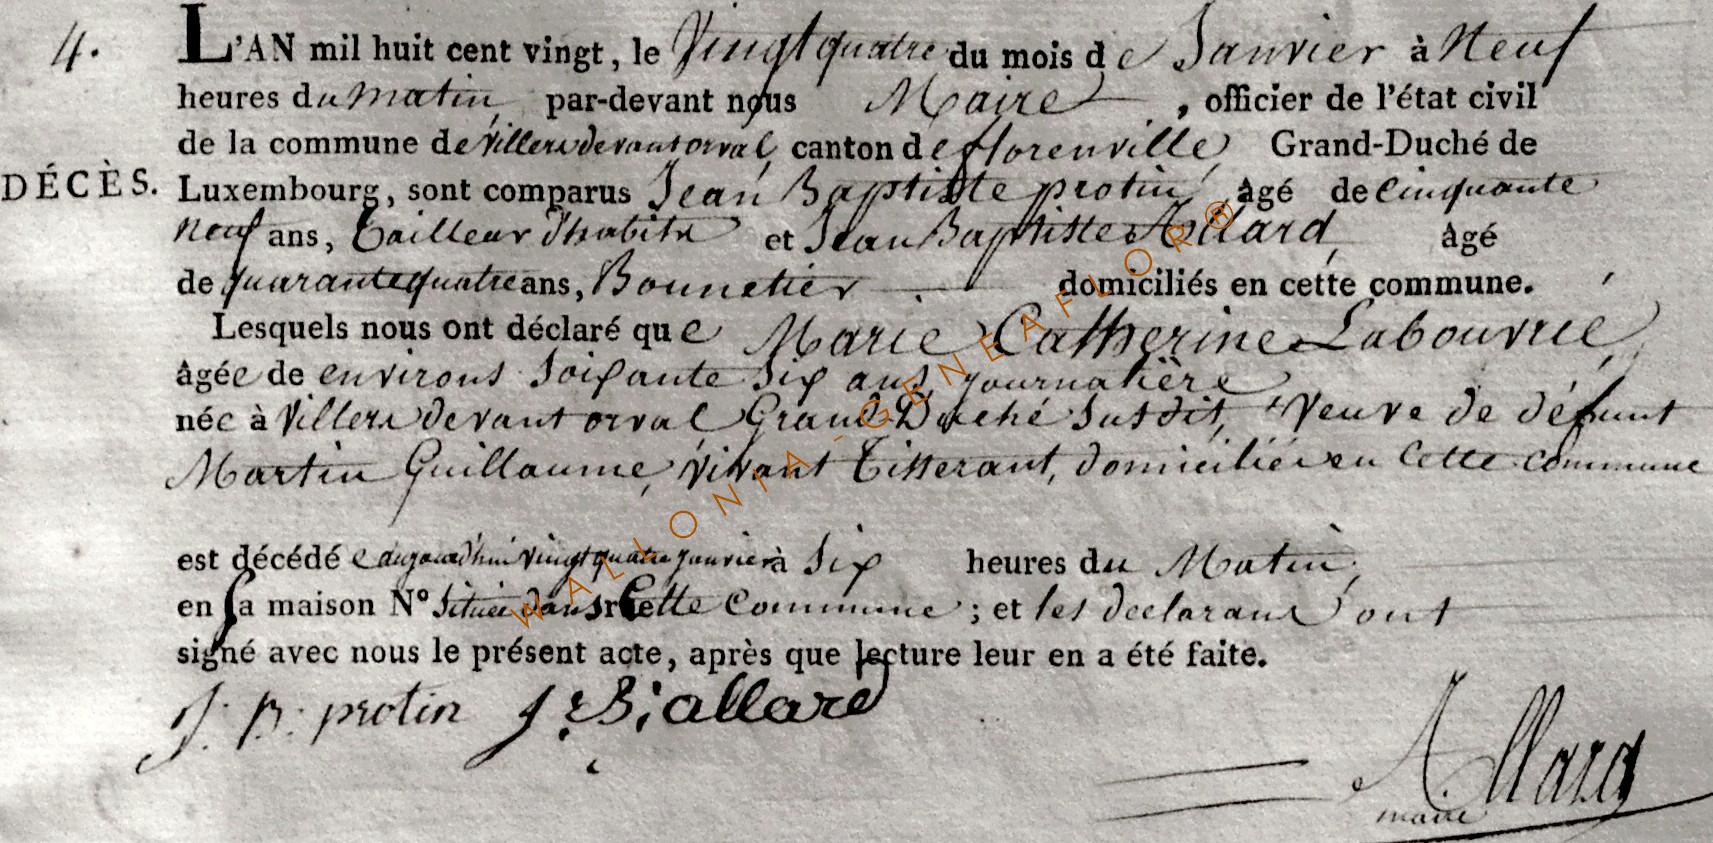 4.
L'AN mil huit cent vingt, le Vingt quatre du mois de Janvier à Neuf
heures du matin, par-devant nous Maire, officier de l'état civil
de la commune de villers devant orval, canton de florenville, Grand-Duché de
DÉCÈS.
Luxembourg, sont comparus Jean Baptiste protin, âgé de Cinquante
Neuf ans, Tailleur d'habits et Jean Baptiste Allard, âgé
de quarante quatre ans, Bonnetier domiciliés en cette commune.
Lesquels nous ont déclaré que Marie Catherine Labouvrie,
âgée de environs Soixante Six ans, journalière
née à Villers devant orval Grand Duché Susdit, Veuve de défunt
Martin Guillaume, vivant Tisserant, domiciliée en Cette Commune
est décédée aujourd'hui vingt quatre janvier à Six heures du Matin,
en sa maison N° Située dans Cette Commune; et les declarans ont
signé avec nous le présent acte, après que lecture leur en a été faite.
J. B. protin J. B; allard
Allard
maire
WALLONIA - GENEAFLOR®